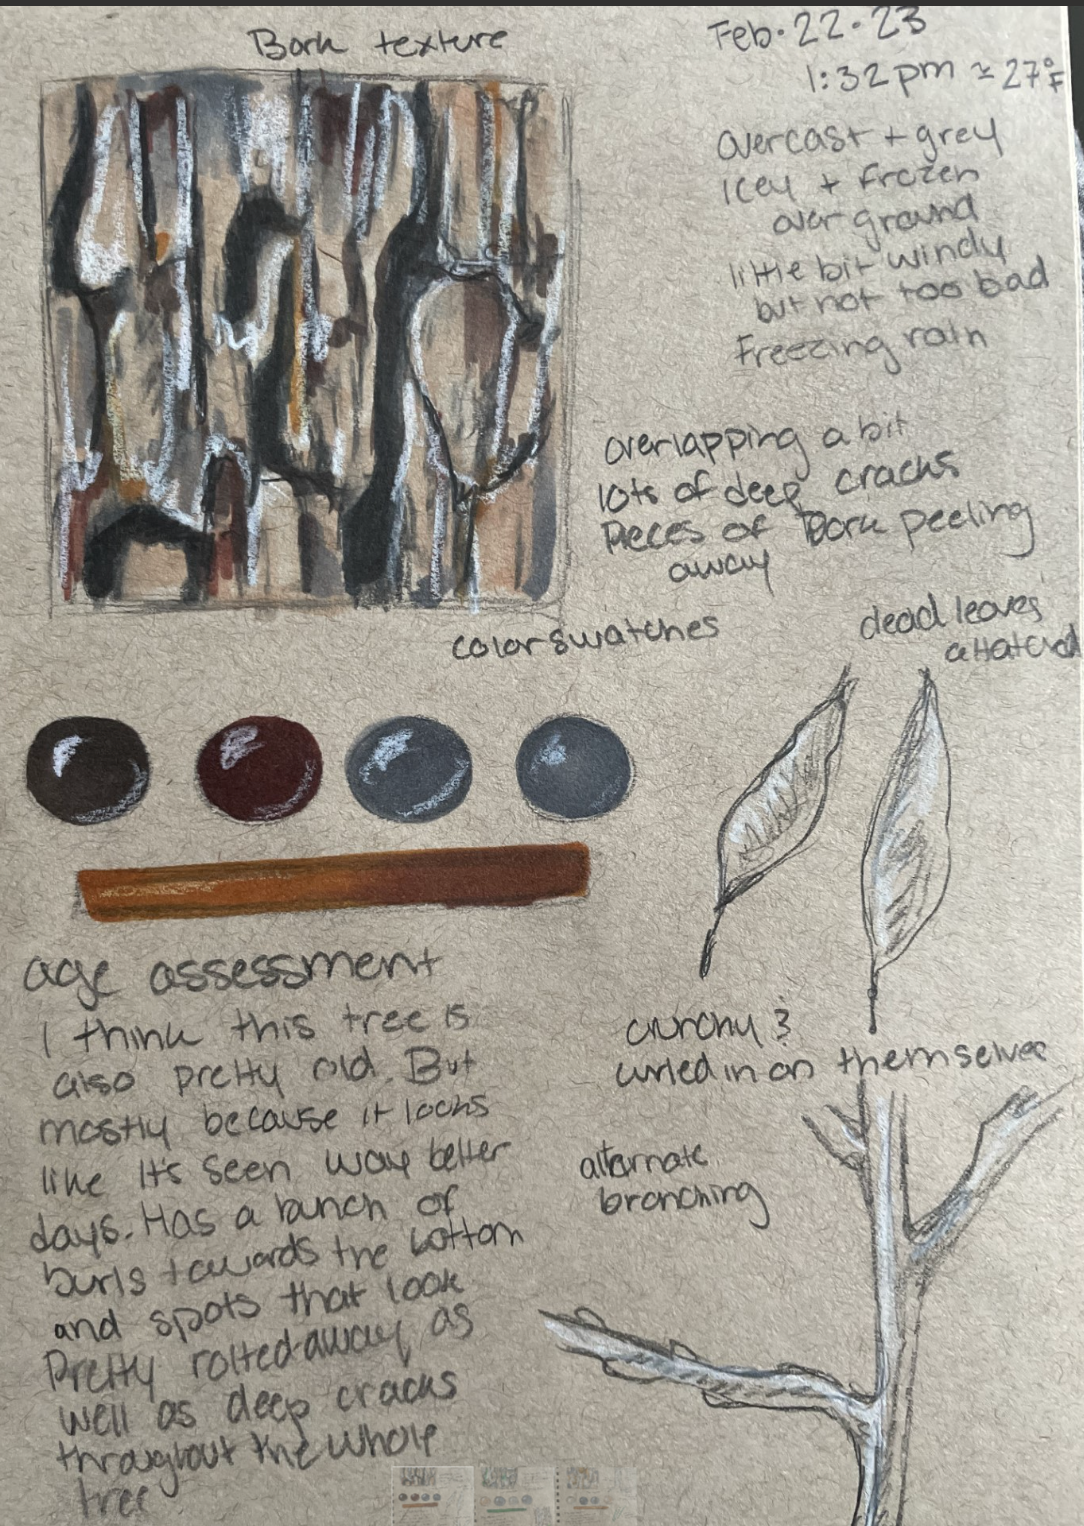 Bark texture
Feb. 22. 23
1:32 pm ≈ 27°F
overcast + grey
Icey + frozen
over ground
little bit windy
but not too bad
Freezing rain
overlapping a bit
lots of deep cracks
Pieces of Bark peeling
away
color swatches
dead leaves
attatched
crunchy &
curled in on themselves
alternate
branching
age assessment
I think this tree is
also pretty old. But
mostly because it looks
like It's seen way better
days. Has a bunch of
burls towards the bottom
and spots that look
Pretty rotted-away as
well as deep cracks
throughout the whole
tree